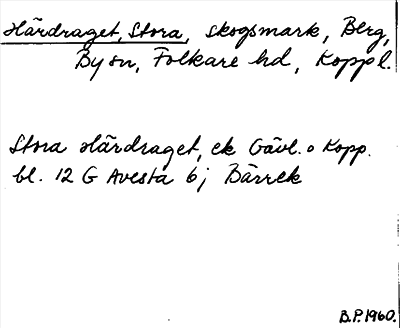 Härdraget, Stora, skogsmark, Berg,
By sn, Folkare hd, Koppl.
Stora Härdraget, ek Gävl. o Kopp.
bl. 12 G Avesta 6j Bärrek
B.P. 1960.